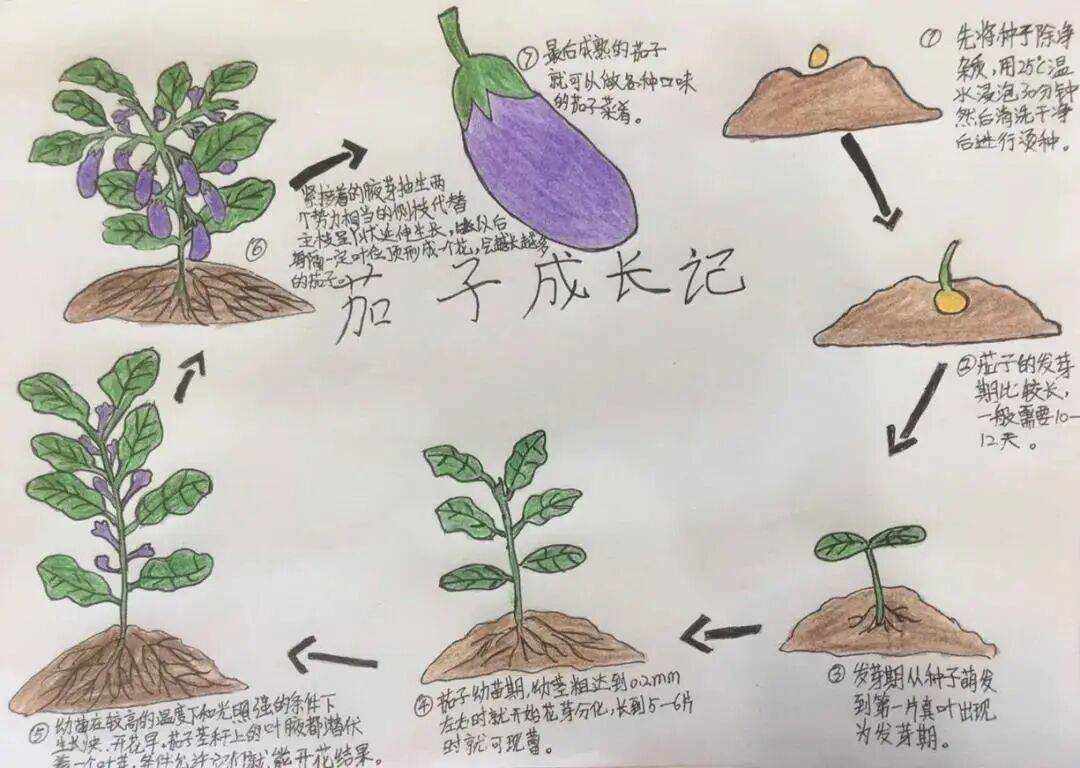 茄子成长记
① 先将种子除净
杂质,用25℃温
水浸泡30分钟
然后清洗干净
后进行烫种。
② 茄子的发芽
期比较长,
一般需要10-
12天。
③ 发芽期从种子萌发
到第一片真叶出现
为发芽期。
④ 茄子幼苗期,幼茎粗达到0.2mm
左右时就开始花芽分化,长到5-6片
时就可现蕾。
⑤ 幼苗在较高的温度下和光照强的条件下
生长快、开花早。茄子茎秆上的叶腋都潜伏
着一个叶芽,条件允许它们就能开花结果。
⑥
紧接着的腋芽抽生两
个势力相当的侧枝代替
主枝呈丫状延伸生长,以后
每隔一定叶位顶形成一个花,会越长越多
的茄子。
⑦ 最后成熟的茄子
就可以做各种口味
的茄子菜肴。